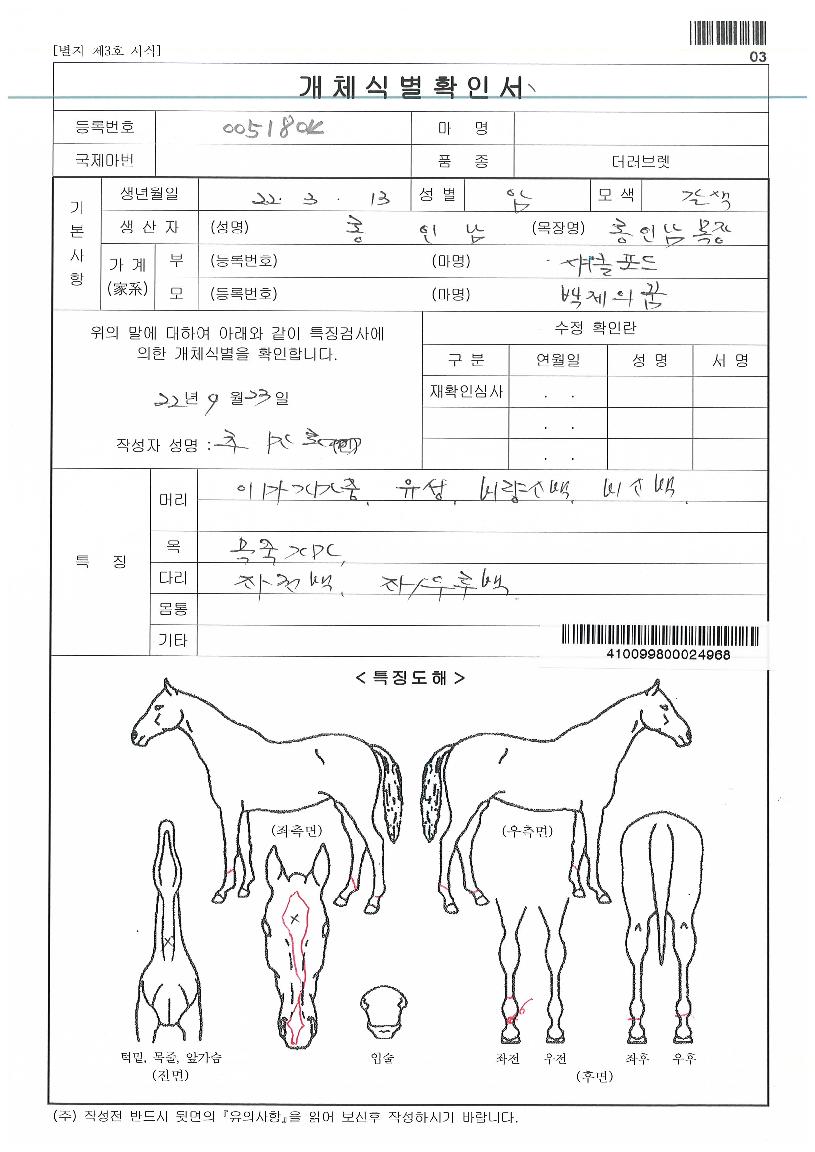 [별지 제3호 서식]
03
개체식별확인서
등록번호 0051804 마 명
국제마번 품 종 더러브렛
기본사항
생년월일 22. 3. 13 성별 암 모색 갈색
생산자 (성명) 홍인남 (목장명) 홍인남목장
가계(家系) 부 (등록번호) (마명) 섀클포드
모 (등록번호) (마명) 백제의꿈
위의 말에 대하여 아래와 같이 특징검사에
의한 개체식별을 확인합니다.
22년 9월 23일
작성자 성명 :
수정 확인란
구 분 연월일 성 명 서 명
재확인심사 . .
. .
. .
특 징
머리 유성, 비량소백, 비소백.
목
다리 좌전백, 좌/우후백
몸통
기타
410099800024968
< 특징도해 >
(좌측면) (우측면)
턱밑, 목줄, 앞가슴 입술 좌전 우전 좌후 우후
(전면) (후면)
(주) 작성전 반드시 뒷면의 『유의사항』을 읽어 보신후 작성하시기 바랍니다.